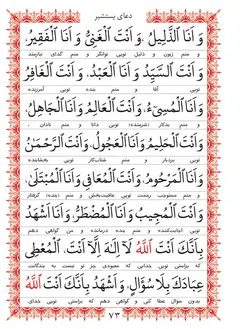 دعای یستشیر
وَ اَنَا الذَّلِیلُ، وَ اَنْتَ الْغَنِیُّ وَ اَنَا الْفَقِیرُ،
و منم زبون و ذلیل تویی توانگر و منم گدای نیازمند
وَ اَنْتَ السَّیِّدُ وَ اَنَا الْعَبْدُ، وَ اَنْتَ الْغَافِرُ
تویی آقا و منم بنده تویی آمرزنده
وَ اَنَا الْمُسِیءُ، وَ اَنْتَ الْعَالِمُ وَ اَنَا الْجَاهِلُ،
و منم بدکار (شرمنده) تویی دانا و منم نادان
وَ اَنْتَ الْحَلِیمُ وَ اَنَا الْعَجُولُ، وَ اَنْتَ الرَّحْمٰنُ
تویی بردبار و منم شتابکار تویی بخشاینده
وَ اَنَا الْمَرْحُومُ، وَ اَنْتَ الْمُعَافِی وَ اَنَا الْمُبْتَلٰی،
و منم مستوجب رحمت تویی عافیت‌بخش و منم (بنده) گرفتار
وَ اَنْتَ الْمُجِیبُ وَ اَنَا الْمُضْطَرُّ، وَ اَنَا اَشْهَدُ
تویی اجابت‌کننده و منم بنده درمانده و من گواهی دهم
بِاَنَّکَ اَنْتَ اللّٰهُ لَا اِلٰهَ اِلَّا اَنْتَ، الْمُعْطِی
که براستی تویی خدایی که معبودی جز تو نیست به بندگانت
عِبَادَکَ بِلَا سُؤَالٍ، وَ اَشْهَدُ بِاَنَّکَ اَنْتَ اللّٰهُ
بدون سؤال عطا کنی و گواهی دهم که براستی تویی خدای
۷۳